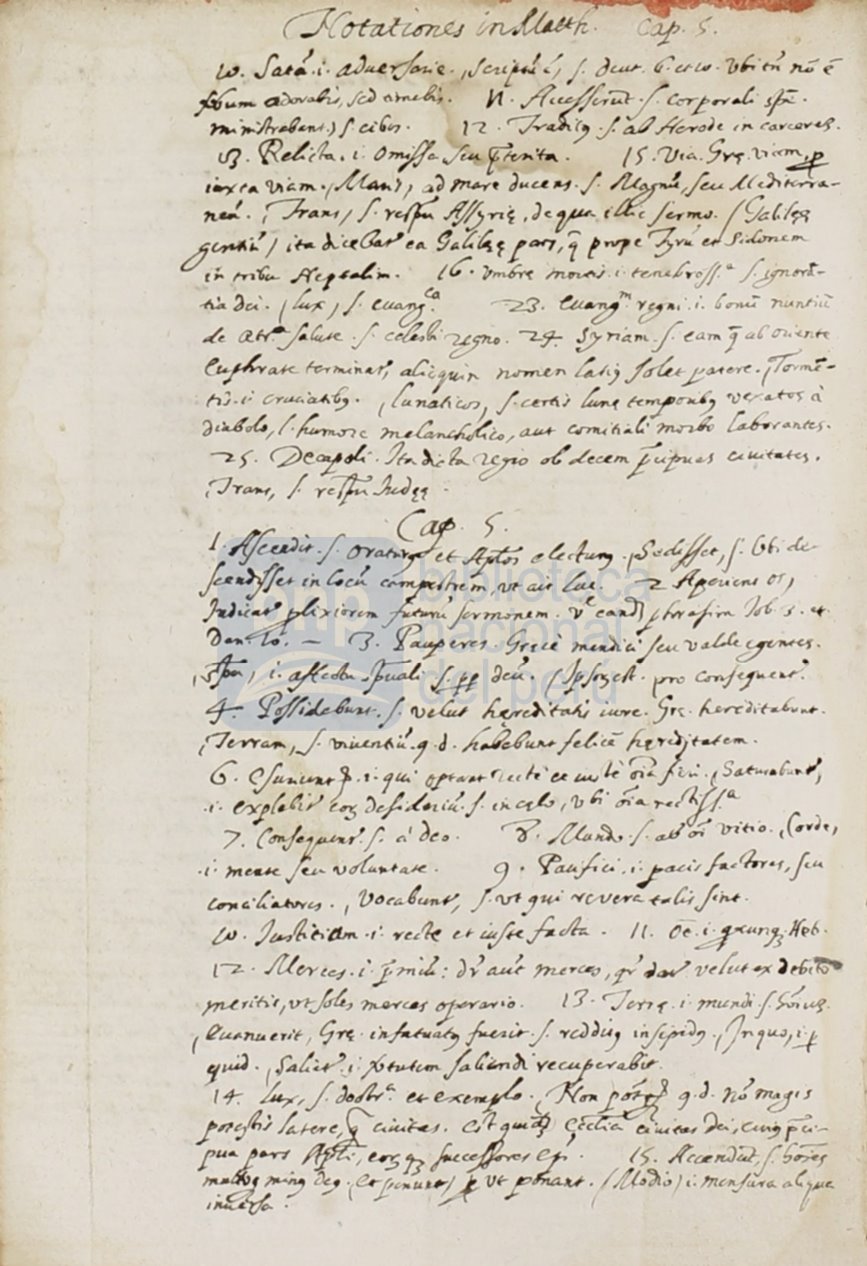 Notationes in Matth. Cap. 5.
10. Satā .i. adversarie. , Scriptū ē, s. deut. 6. et 10. Vbi tn̄ nō ē
verbum adorabis, sed amabis. 11. Accesserūt .s. corporali spē.
ministrabant) s. cibos. 12. Traditus .s. ab Herode in carcerem.
13. Relicta .i. omissa seu p̄terita. 15. Via. Gre. viam, p
iuxta viam. , Maris, ad mare ducens. s. Magnū, seu Mediterra-
neū. , Trans, s. respū Assyrię, de qua illic sermo. (Galileę
gentiū) ita dicebat' ea Galileę pars, q̄ prope Tyrū et Sidonem
in tribu Neptalim. 16. Vmbre mortis .i. tenebross.ᵃ s. ignorā-
tia dei. , lux, s. euang.ᶜᵃ 23. Euang.ᵐ regni .i. bonū nuntiū
de salute s. celesti regno. 24. Syriam .s. eam q̄ ab oriente
Euphrate terminat', alicquin nomen latius solet patere. , Tormē-
tis .i. cruciatibus. , lunaticos, s. certis lunę temporibus vexatos à
diabolo, l. humore melancholico, aut comitiali morbo laborantes.
25. Decapoli. Ita dicta regio ob decem p̄cipuas ciuitates.
, Trans, s. respū Iudęę.
Cap. 5.
1. Ascendit .s. oraturus et Aplos electurus. , Sedisset, s. Vbi de-
scendisset in locū campestrem, vt ait Luc. 2 Aperiens os,
Indicat' plixiorem futurū sermonem. phrasim Iob. 3. et
Dan. 10. — 3. Pauperes. Gręcè mendici seu valde egentes.
, Spū, i. affectu sp̄uali deū. (Ipsorum est. pro consequent'.
4. Possidebunt .s. velut hęreditatis iure. Grę. hereditabunt.
, Terram, s. viuentiū. q. d. habebunt felicē hęreditatem.
6. Esuriunt .i. qui optant rectè et iustè oīa fieri. , Saturabunt',
.i. explebit' eorum desideriū. s. in cęlo, vbi oīa rectiss.ᵃ
7. Consequent'. s. à deo. 8. Mundo .s. ab oī vitio. , Corde,
.i. mente seu voluntate. 9. Pacifici .i. pacis factores, seu
conciliatores. , Vocabunt', s. vt qui revera tales sint.
10. Iustitiam .i. recte et iuste facta. 11. Oē .i. quodcunque. Heb.
12. Merces .i. p̄miū: dr̄ aut merces, qr̄ dat' velut ex debito
meritis, vt solet merces operario. 13. Terrę .i. mundi s. hoīum
, Euanuerit, Grę. infatuatus fuerit .s. redditus insipidus. , In quo, .i. p
quid. , Saliet' .i. virtutem saliendi recuperabit.
14. Lux, s. doctr.ᵃ et exemplo. , Non q. d. nō magis
potestis latere, q̄ ciuitas. Est quidem Ecclia ciuitas dei, cuius p̄ci-
pua pars Apli, eorumque successores Epi. 15. Accendūt, s. hoīes
(Et ponunt) p vt ponant. (Modio) .i. mensura aliqua
inuersa.
biblioteca
nacional
del perú
bnp